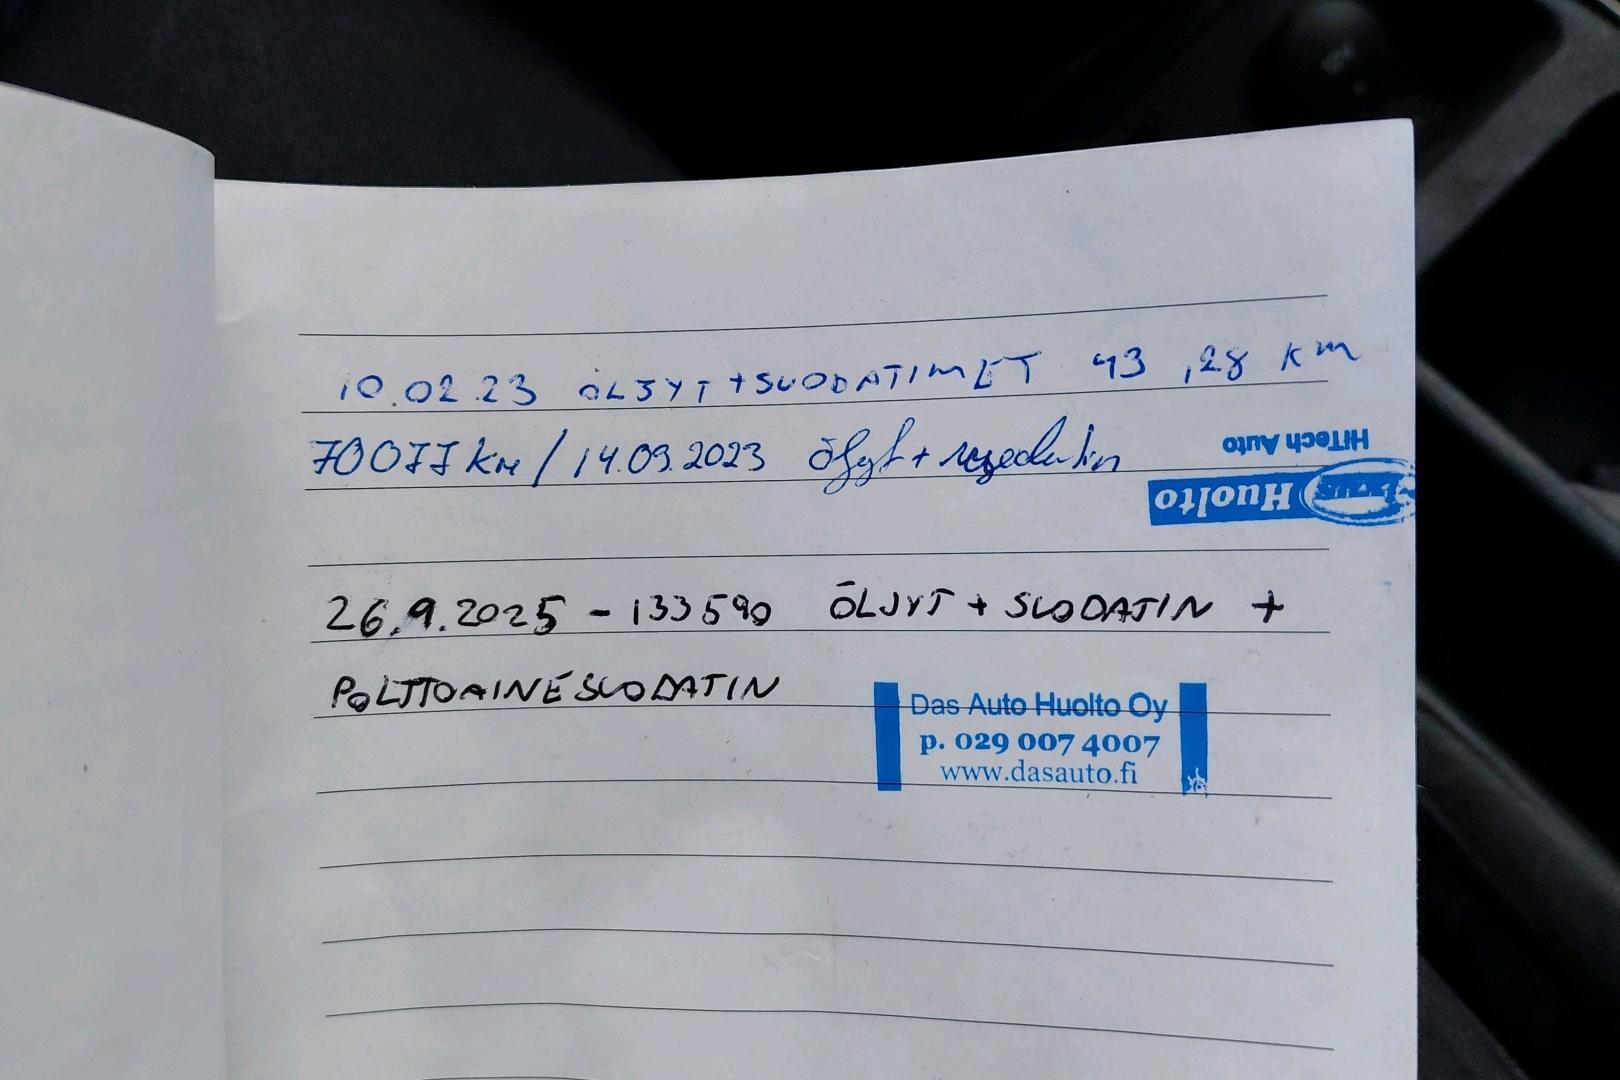 10.02.23 ÖLJYT + SUODATIMET 43 ,28 km
70077 km / 14.09.2023 öljyt +
HiTech Auto
Huolto
26.9.2025 - 133590 ÖLJYT + SUODATIN +
POLTTOAINESUODATIN
Das Auto Huolto Oy
p. 029 007 4007
www.dasauto.fi